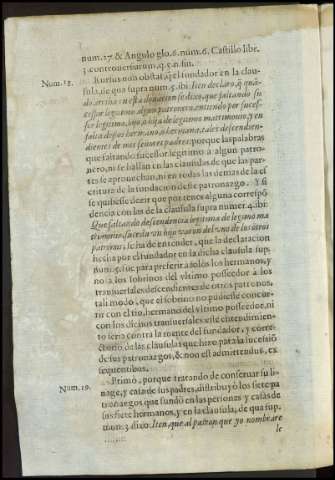 num. 27. & Angulo glo. 6. num. 6. Castillo libr.
3. controversiarum, q. 5. n. fin.
Num. 18.
Rursus non obstat, q̃ el fundador en la clau-
sula, de qua supra num. 5. ibi: Item declaro, q̃ quã-
do arriba en esta donacion se dixo, que faltando su-
cessor legitimo algun patronero, entiendo por suces-
sor legitimo, hijo, o hija de legitimo matrimonio, y en
falta dellos hermano, o hermana, tales descendien-
dientes de mis señores padres: porque las palabras
que faltando sucessor legitimo a algun patro-
nero, ni se hallan en las clausulas de que las par-
tes se aprouechan, ni en todas las demas de la es-
critura de la fundacion de este patronazgo. Y si
se quisiesse dezir que pos tenes alguna correspõ
dencia con las de la clausula supra numer. 4. ibi:
Que faltando descendencia legitima de legitimo ma
trimonio, suceda vn hijo varon del vno de los otros
patronos, se ha de entender, que la declaracion
hecha por el fundador en la dicha clausula sup.
num. 5. fue para preferir a solos los hermanos, y
no a los sobrinos del vltimo posseedor a los
transuersales descendientes de otros patronos,
tali modo, que el sobrino no pudiesse concur-
rir con el tio, hermano del vltimo posseedor, ni
con los dichos transuersales: este entendimien-
to seria contra la mente del fundador, y corre-
ctorio de las clausulas que hizo para la sucessiõ
de sus patronazgos, & non est admittendus, ex
sequentibus.
Num. 19.
Primò, porque tratando de conseruar su li-
nage, y casa de sus padres, distribuyò los siete pa
tronazgos que fundò en las personas y casas de
sus siete hermanos, y en la clausula, de qua sup.
num. 3. dixo: Iten que al patron que yo nombrare
le